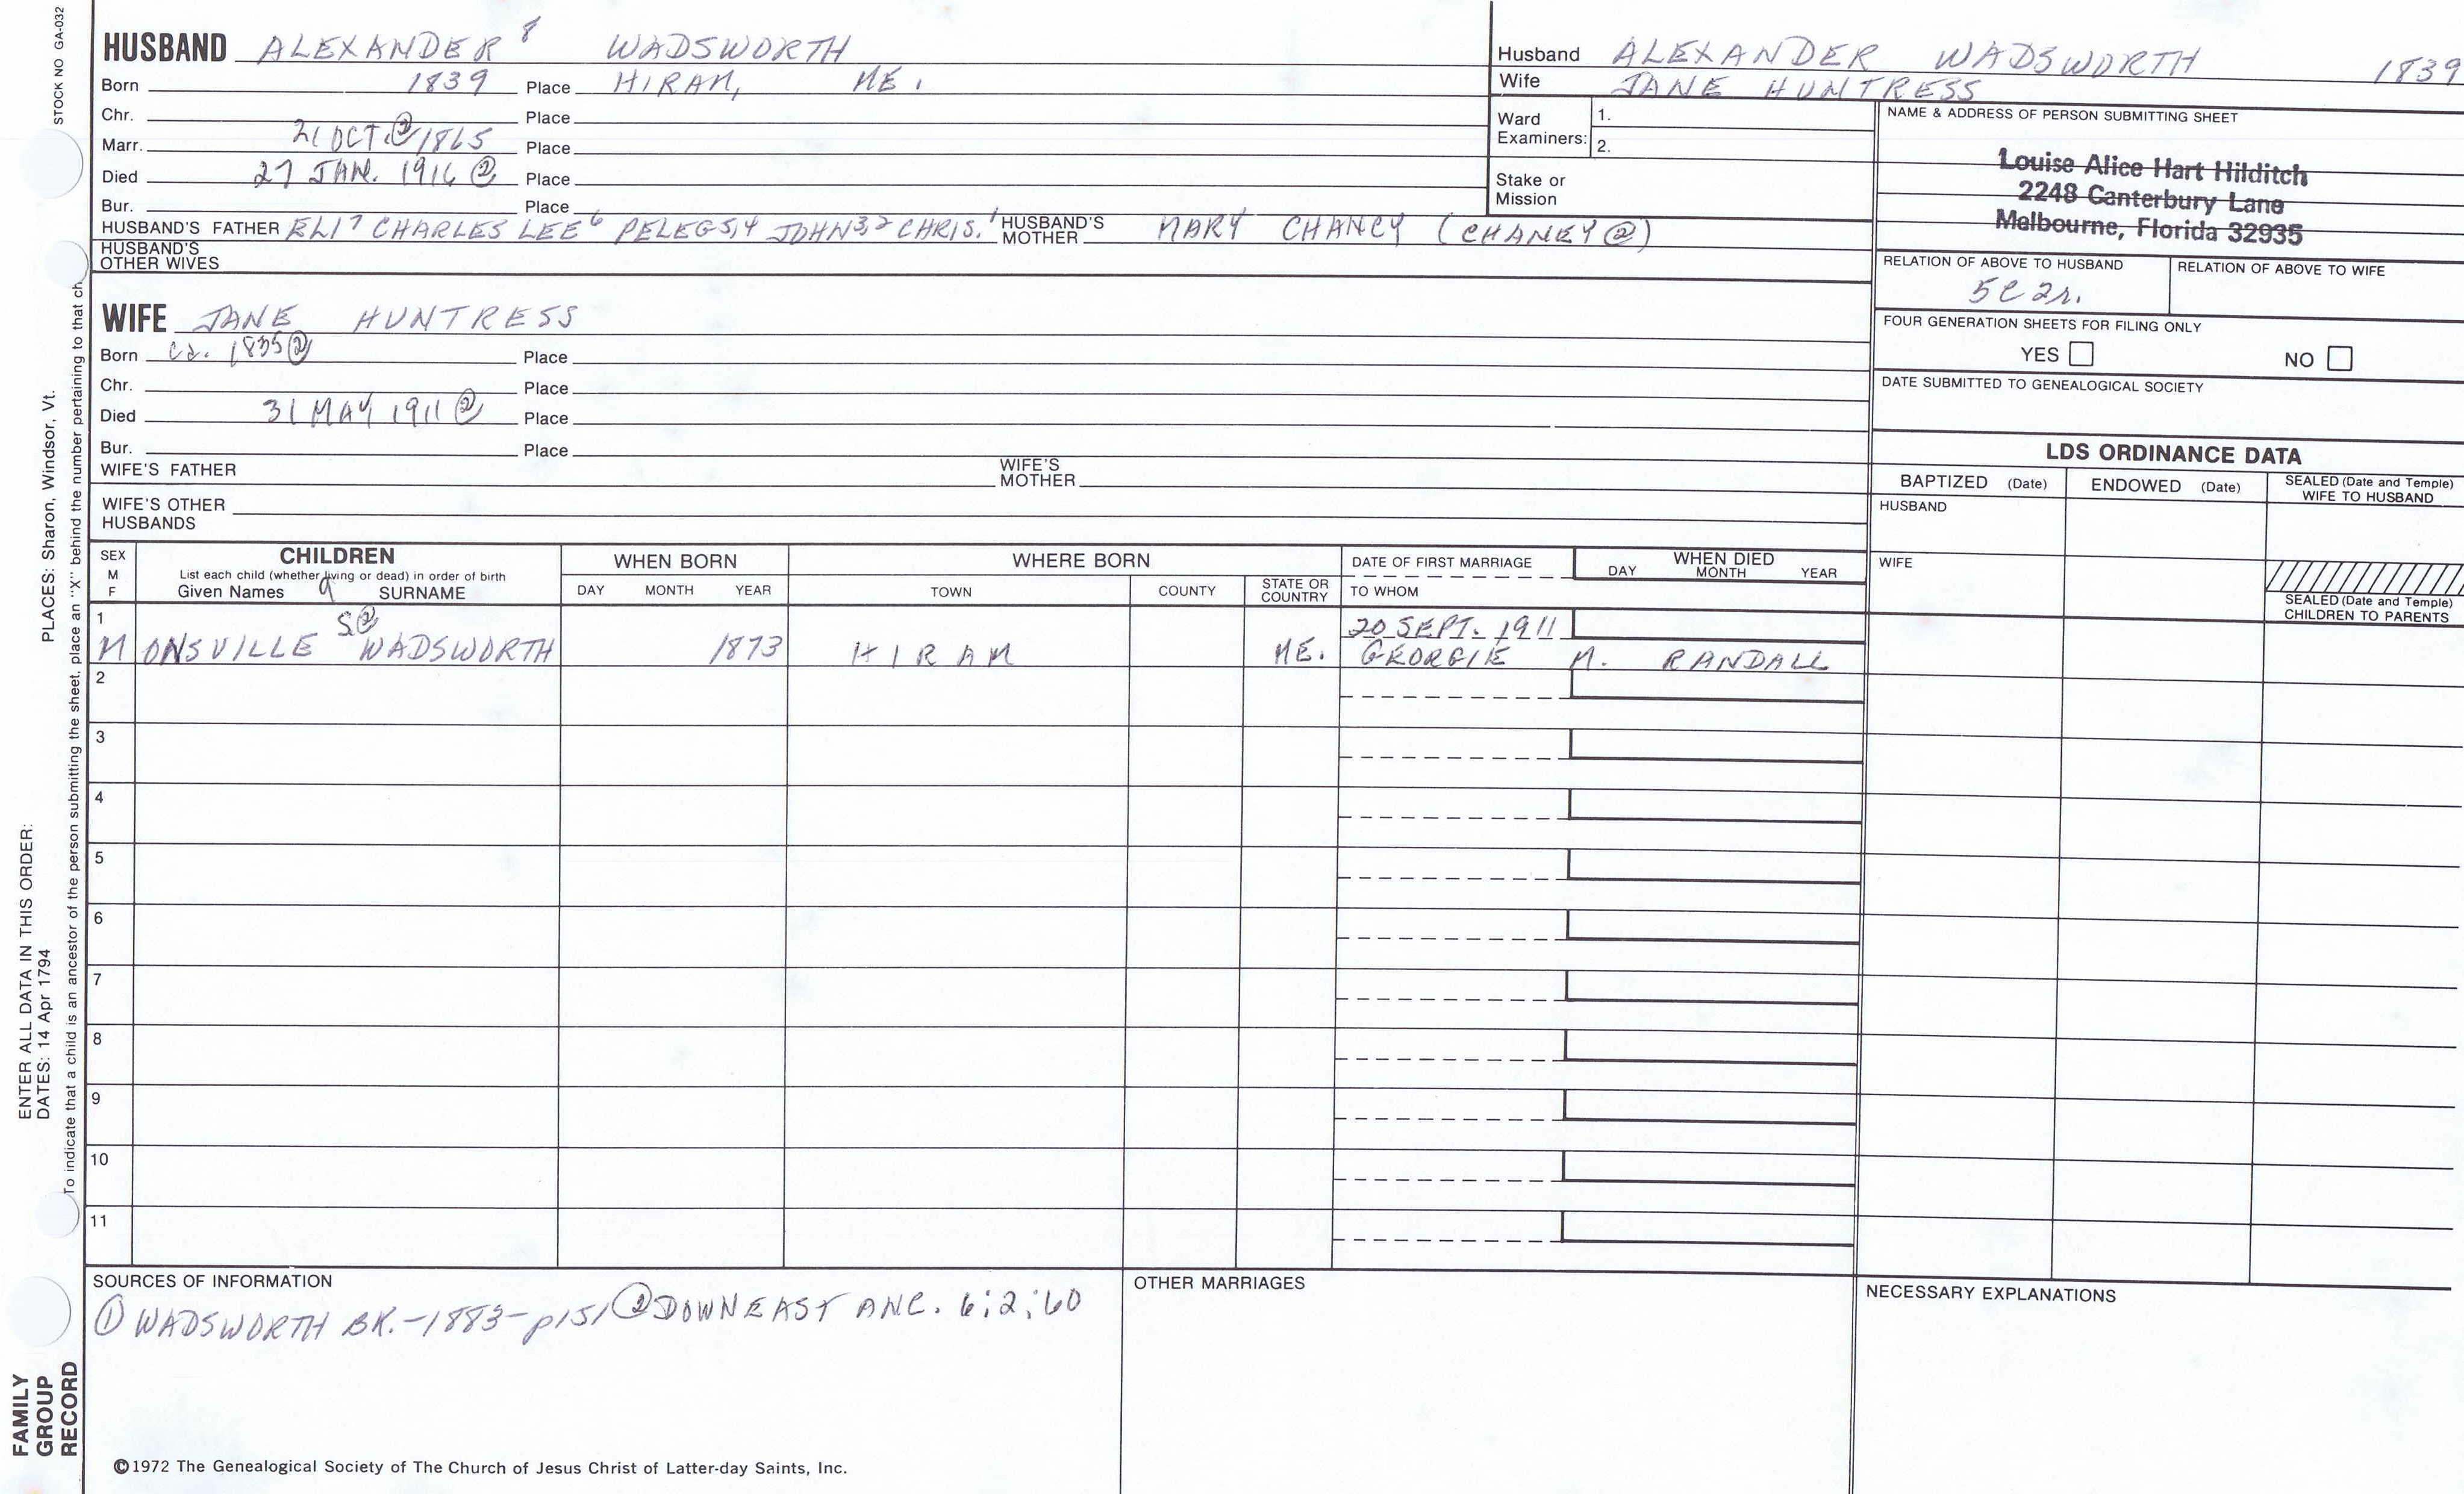 STOCK NO GA-032
HUSBAND ALEXANDER 8 WADSWORTH
Born 1839 Place HIRAM, ME.
Chr. Place
Marr. 21 OCT. ② 1865 Place
Died 27 JAN. 1916 ② Place
Bur. Place
HUSBAND'S FATHER ELI 7 CHARLES LEE 6 PELEG 5,4 JOHN 3,2 CHRIS. 1 HUSBAND'S MOTHER MARY CHANCY (CHANEY ②)
HUSBAND'S OTHER WIVES
WIFE JANE HUNTRESS
Born ca. 1835 ② Place
Chr. Place
Died 31 MAY 1911 ② Place
Bur. Place
WIFE'S FATHER WIFE'S MOTHER
WIFE'S OTHER HUSBANDS
Husband ALEXANDER WADSWORTH 1839
Wife JANE HUNTRESS
Ward Examiners: 1.
2.
Stake or Mission
NAME & ADDRESS OF PERSON SUBMITTING SHEET
Louise Alice Hart Hilditch
2248 Canterbury Lane
Melbourne, Florida 32935
RELATION OF ABOVE TO HUSBAND RELATION OF ABOVE TO WIFE
5C 2r.
FOUR GENERATION SHEETS FOR FILING ONLY
YES NO
DATE SUBMITTED TO GENEALOGICAL SOCIETY
LDS ORDINANCE DATA
BAPTIZED (Date) ENDOWED (Date) SEALED (Date and Temple) WIFE TO HUSBAND
HUSBAND
WIFE
SEALED (Date and Temple) CHILDREN TO PARENTS
SEX M F CHILDREN WHEN BORN WHERE BORN DATE OF FIRST MARRIAGE WHEN DIED
List each child (whether living or dead) in order of birth
Given Names 9 SURNAME DAY MONTH YEAR TOWN COUNTY STATE OR COUNTRY TO WHOM DAY MONTH YEAR
1 S② 20 SEPT. 1911
M ONSVILLE WADSWORTH 1873 HIRAM ME. GEORGIE M. RANDALL
2
3
4
5
6
7
8
9
10
11
SOURCES OF INFORMATION
① WADSWORTH BK.-1883-p151 ② DOWNEAST ANC. 6:2:60
OTHER MARRIAGES
NECESSARY EXPLANATIONS
©1972 The Genealogical Society of The Church of Jesus Christ of Latter-day Saints, Inc.
FAMILY GROUP RECORD
ENTER ALL DATA IN THIS ORDER:
DATES: 14 Apr 1794 PLACES: Sharon, Windsor, Vt.
To indicate that a child is an ancestor of the person submitting the sheet, place an "X" behind the number pertaining to that ch